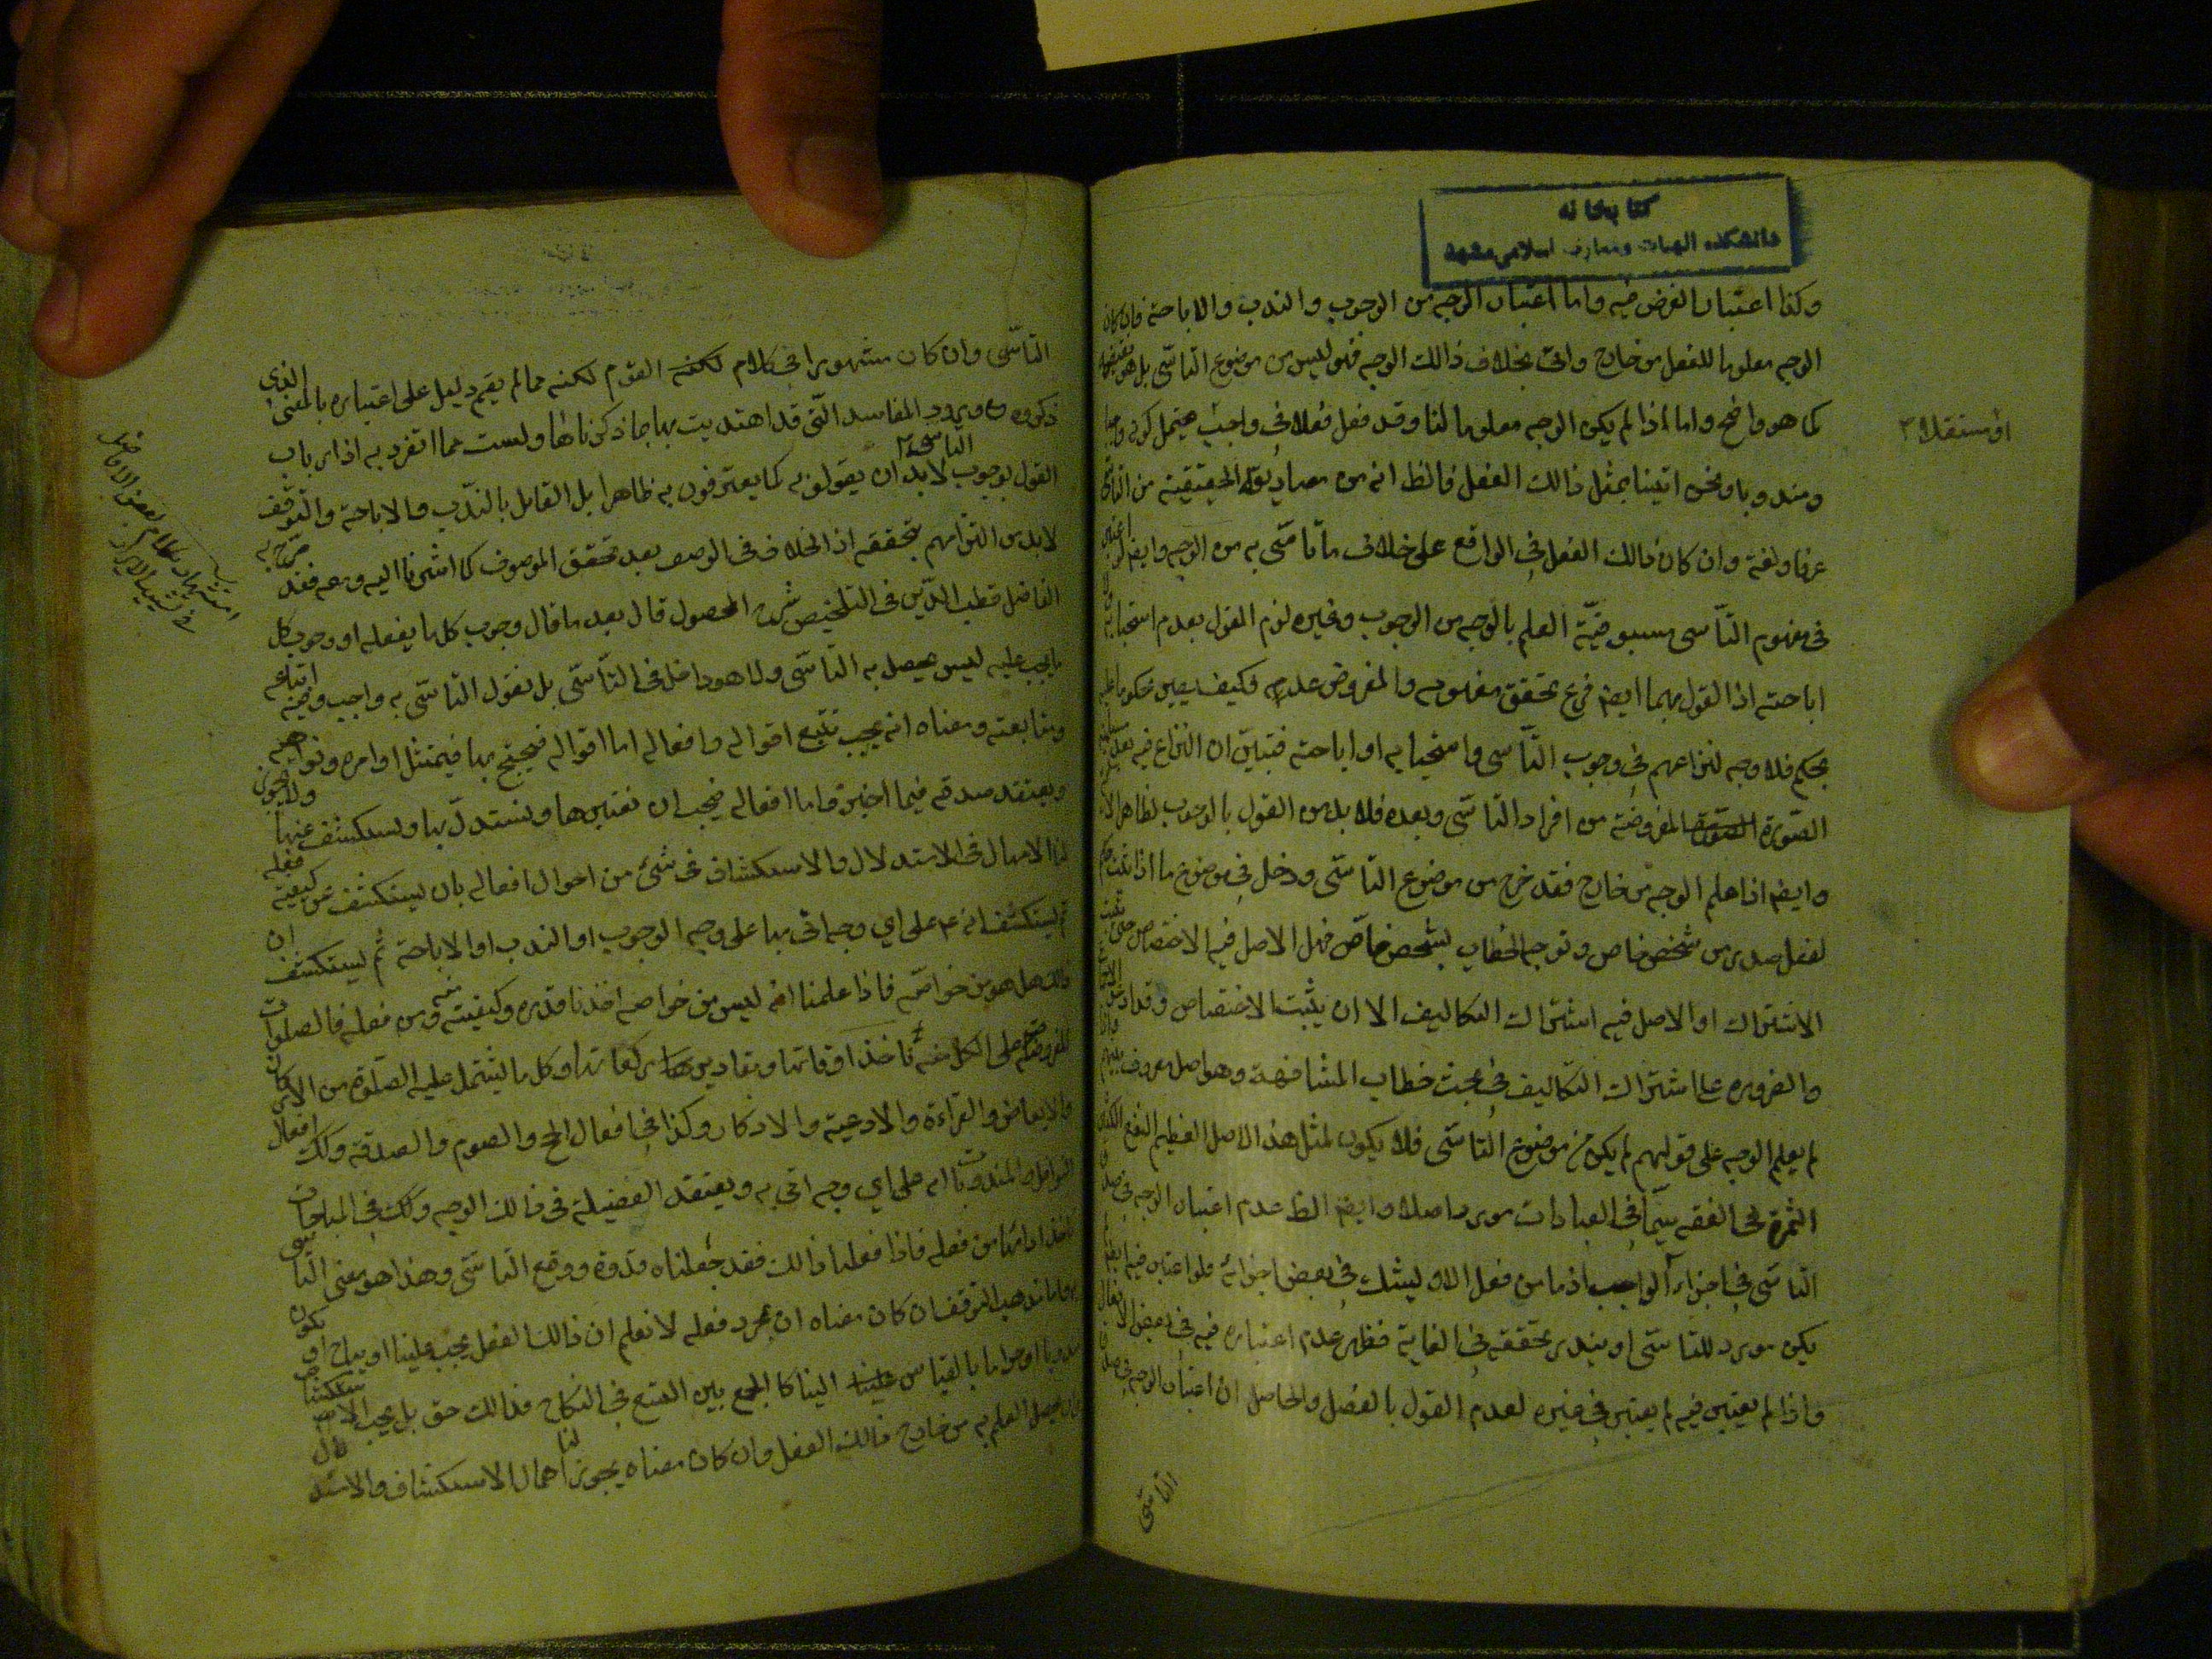 كتابخانه
دانشكده الهيات ومعارف اسلامى مشهد
وكذا اعتبار الغرض فيه واما اعتبار الوجه من الوجوب والندب والاباحة فان كان
الوجه معلوما للفعل من خارج واتى بخلاف ذالك الوجه فهو ليس من موضوع التاسّى بل هو نقيضه
كما هو واضح واما اذا لم يكن الوجه معلوما لنا وقد فعل فعلا فى واجب يحتمل كونه واجبا
او مستقلا ٢
ومندوبا ونحن اتينا بمثل ذالك الفعل فالظ انه من مصاديقه الحقيقية من التاسّى
عرفا ولغة وان كان ذالك الفعل فى الواقع على خلاف ما تاسّى به من الوجه وايضا لو اعتبر
فى مفهوم التّاسى مسبوقيّة العلم بالوجه من الوجوب وغيره لزم القول بعدم استحبابه
اباحته اذا القول بهما ايضا فرع تحقق مفهومه والمفروض عدمه فكيف يصير محكوما عليه
بحكم فلا وجه لنزاعهم فى وجوب التّاسى واستحبابه او اباحته فتبيّن ان النزاع فيه
الصّورة المفروضة من افراد التاسّى وبعده فلا بد من القول بالوجوب لظاهر
وايضا اذا علم الوجه من خارج فقد خرج من موضوع التاسّى ودخل فى موضوع ما اذا ثبت حكم
لفعل صدر من شخص خاص وتوجه الخطاب بشخص خاصّ فهل الاصل فيه الاختصاص حتى يثبت
الاشتراك او الاصل فيه اشتراك التكاليف الا ان يثبت الاختصاص وقد ادعى
والضروره على اشتراك التّكاليف فى مبحث خطاب المشافهة وهو اصل معروف بينهم
لم يعلم الوجه على قولهم لم يكن من موضوع التاسّى فلا يكون لمثل هذا الاصل العظيم النفع الكثير
الثمرة فى الفقه سيّما فى العبادات مورد اصلا وايضا الظ عدم اعتبار الوجه فى صدق
التاسّى فى اجزاء الواجب اذ ما من فعل الا و يشك فى بعض اجزائه فلو اعتبر فيه
يكن مورد للتاسّى او يندر تحققه فى الغاية فظهر عدم اعتباره فيه فى بعض الافعال
واذا لم يعتبر فيه لم يعتبر فى غيره لعدم القول بالفصل والحاصل ان اعتبار الوجه فى صدق
التاسّى
التاسّى وان كان مشهورا فى كلام القوم لكنه مما لم يقم دليل على اعتباره بالمعنى الذى
ذكروه وورود المفاسد الّتى قد اهتديت بها بما ذكرناها وليست مما اتفرد به اذ ارباب
القول بوجوب التاسى لابد ان يقولو به كما يعترفون به ظاهرا بل القايل بالندب والاباحة والتوقف
لابد من التزامهم بتحققه اذ الخلاف فى الوصف بعد تحقق الموصوف كما اشرنا اليه وعه فقد صرّح به
الفاضل قطب الدّين فى التلخيص شرح المحصول قال بعد ما قال وجوب كل ما يفعله او وجوب كل
ما يجب عليه ليس يحصل به التاسّى ولا هو داخل فى التاسّى بل نقول التاسّى به واجب وفيه اتباعه
ومتابعته ومعناه انه يجب تتبع اقواله وافعاله اما اقواله فيحتج بها فيمتثل اوامره ونواهيه
ويعتقد صدقه فيما اخبره واما افعاله فيجب ان نعتبرها ونستدلّ بها ونستكشف عنها ولا يجوز
لنا الاهمال فى الاستدلال والاستكشاف عن شئ من احوال افعاله بان يستكشف عن كيفية فعله
ثم يستكشف انه ع على اي وجه اتى بها على وجه الوجوب او الندب او الاباحة ثم يستكشف ان
ذالك هل هو من خواصّه فاذا علمنا انه ليس من خواصه اخذنا قدره وكيفيته منه ومن فعله فالصلوات
المفروضة على الكل منه ناخذ اوقاتها ومقاديرها ركعاتها وكل ما يشتمل عليه الصّلوة من الاركان
والابعاض والقراءة والادعية والاذكار وكذا فى افعال الحج والصوم والصدقة وكك افعال
النوافل والمندوبات انه على اي وجه اتى به ويعتقد الفضيلة فى ذالك الوجه وكك فى المباحات
فاذا فعلنا ذالك فقد جعلناه قدوة ووقع التاسّى وهذا هو معنى التاسى
واما مذهب التوقف ان كان معناه ان بمجرد فعله لا نعلم ان ذالك الفعل يجب علينا او يباح او يكون
مندوبا او حراما بالقياس الينا كالجمع بين التسع فى النكاح فذالك حق بل يجب الاستكشاف
يحصل العلم به من خارج ذالك الفعل وان كان معناه يجوز لنا اهمال الاستكشاف والاستدلال
استشهاد بكلام بعض الافاضل